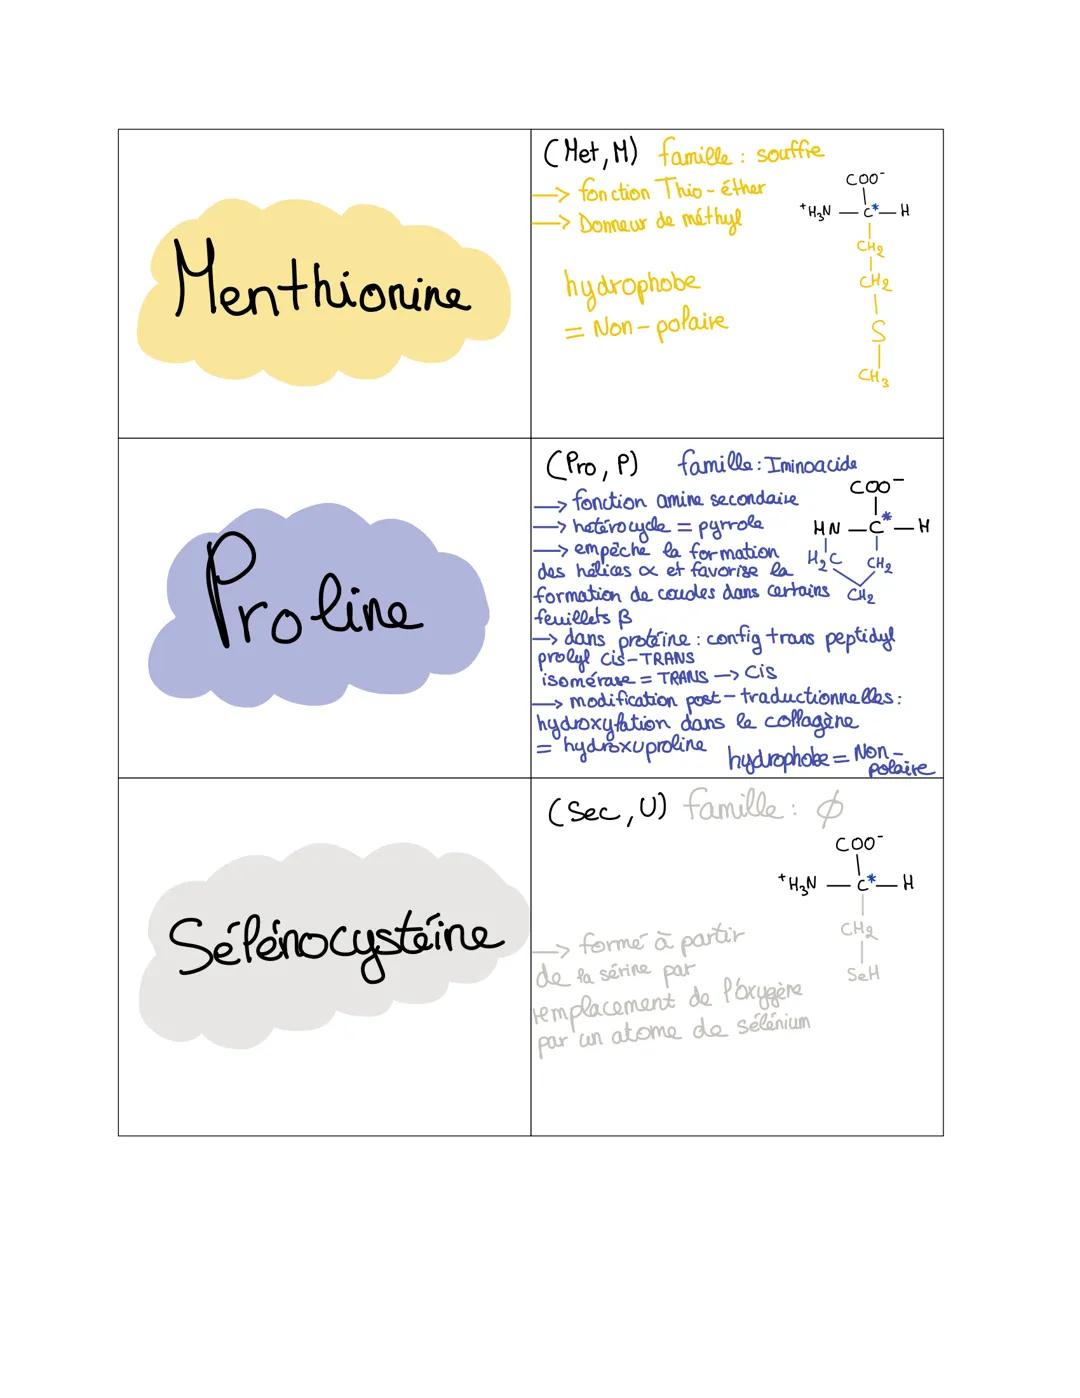 Menthionine
(Met, M) famille : souffre
→ fonction Thio-éther
→ Donneur de méthyl
hydrophobe
= Non-polaire
COO⁻
⁺H₃N — C* — H
CH₂
CH₂
S
CH₃
Proline
(Pro, P) famille : Iminoacide
→ fonction amine secondaire
→ hétérocycle = pyrrole
→ empêche la formation
des hélices α et favorise la
formation de coudes dans certains
feuillets β
→ dans protéine : config trans peptidyl
prolyl cis-TRANS
isomérase = TRANS → Cis
→ modification post-traductionnelles :
hydroxylation dans le collagène
= hydroxyproline
hydrophobe = Non-
polaire
COO⁻
HN — C* — H
H₂C CH₂
CH₂
Sélénocystéine
(Sec, U) famille : ϕ
→ formé à partir
de la sérine par
remplacement de l'oxygène
par un atome de sélénium
COO⁻
⁺H₃N — C* — H
CH₂
SeH